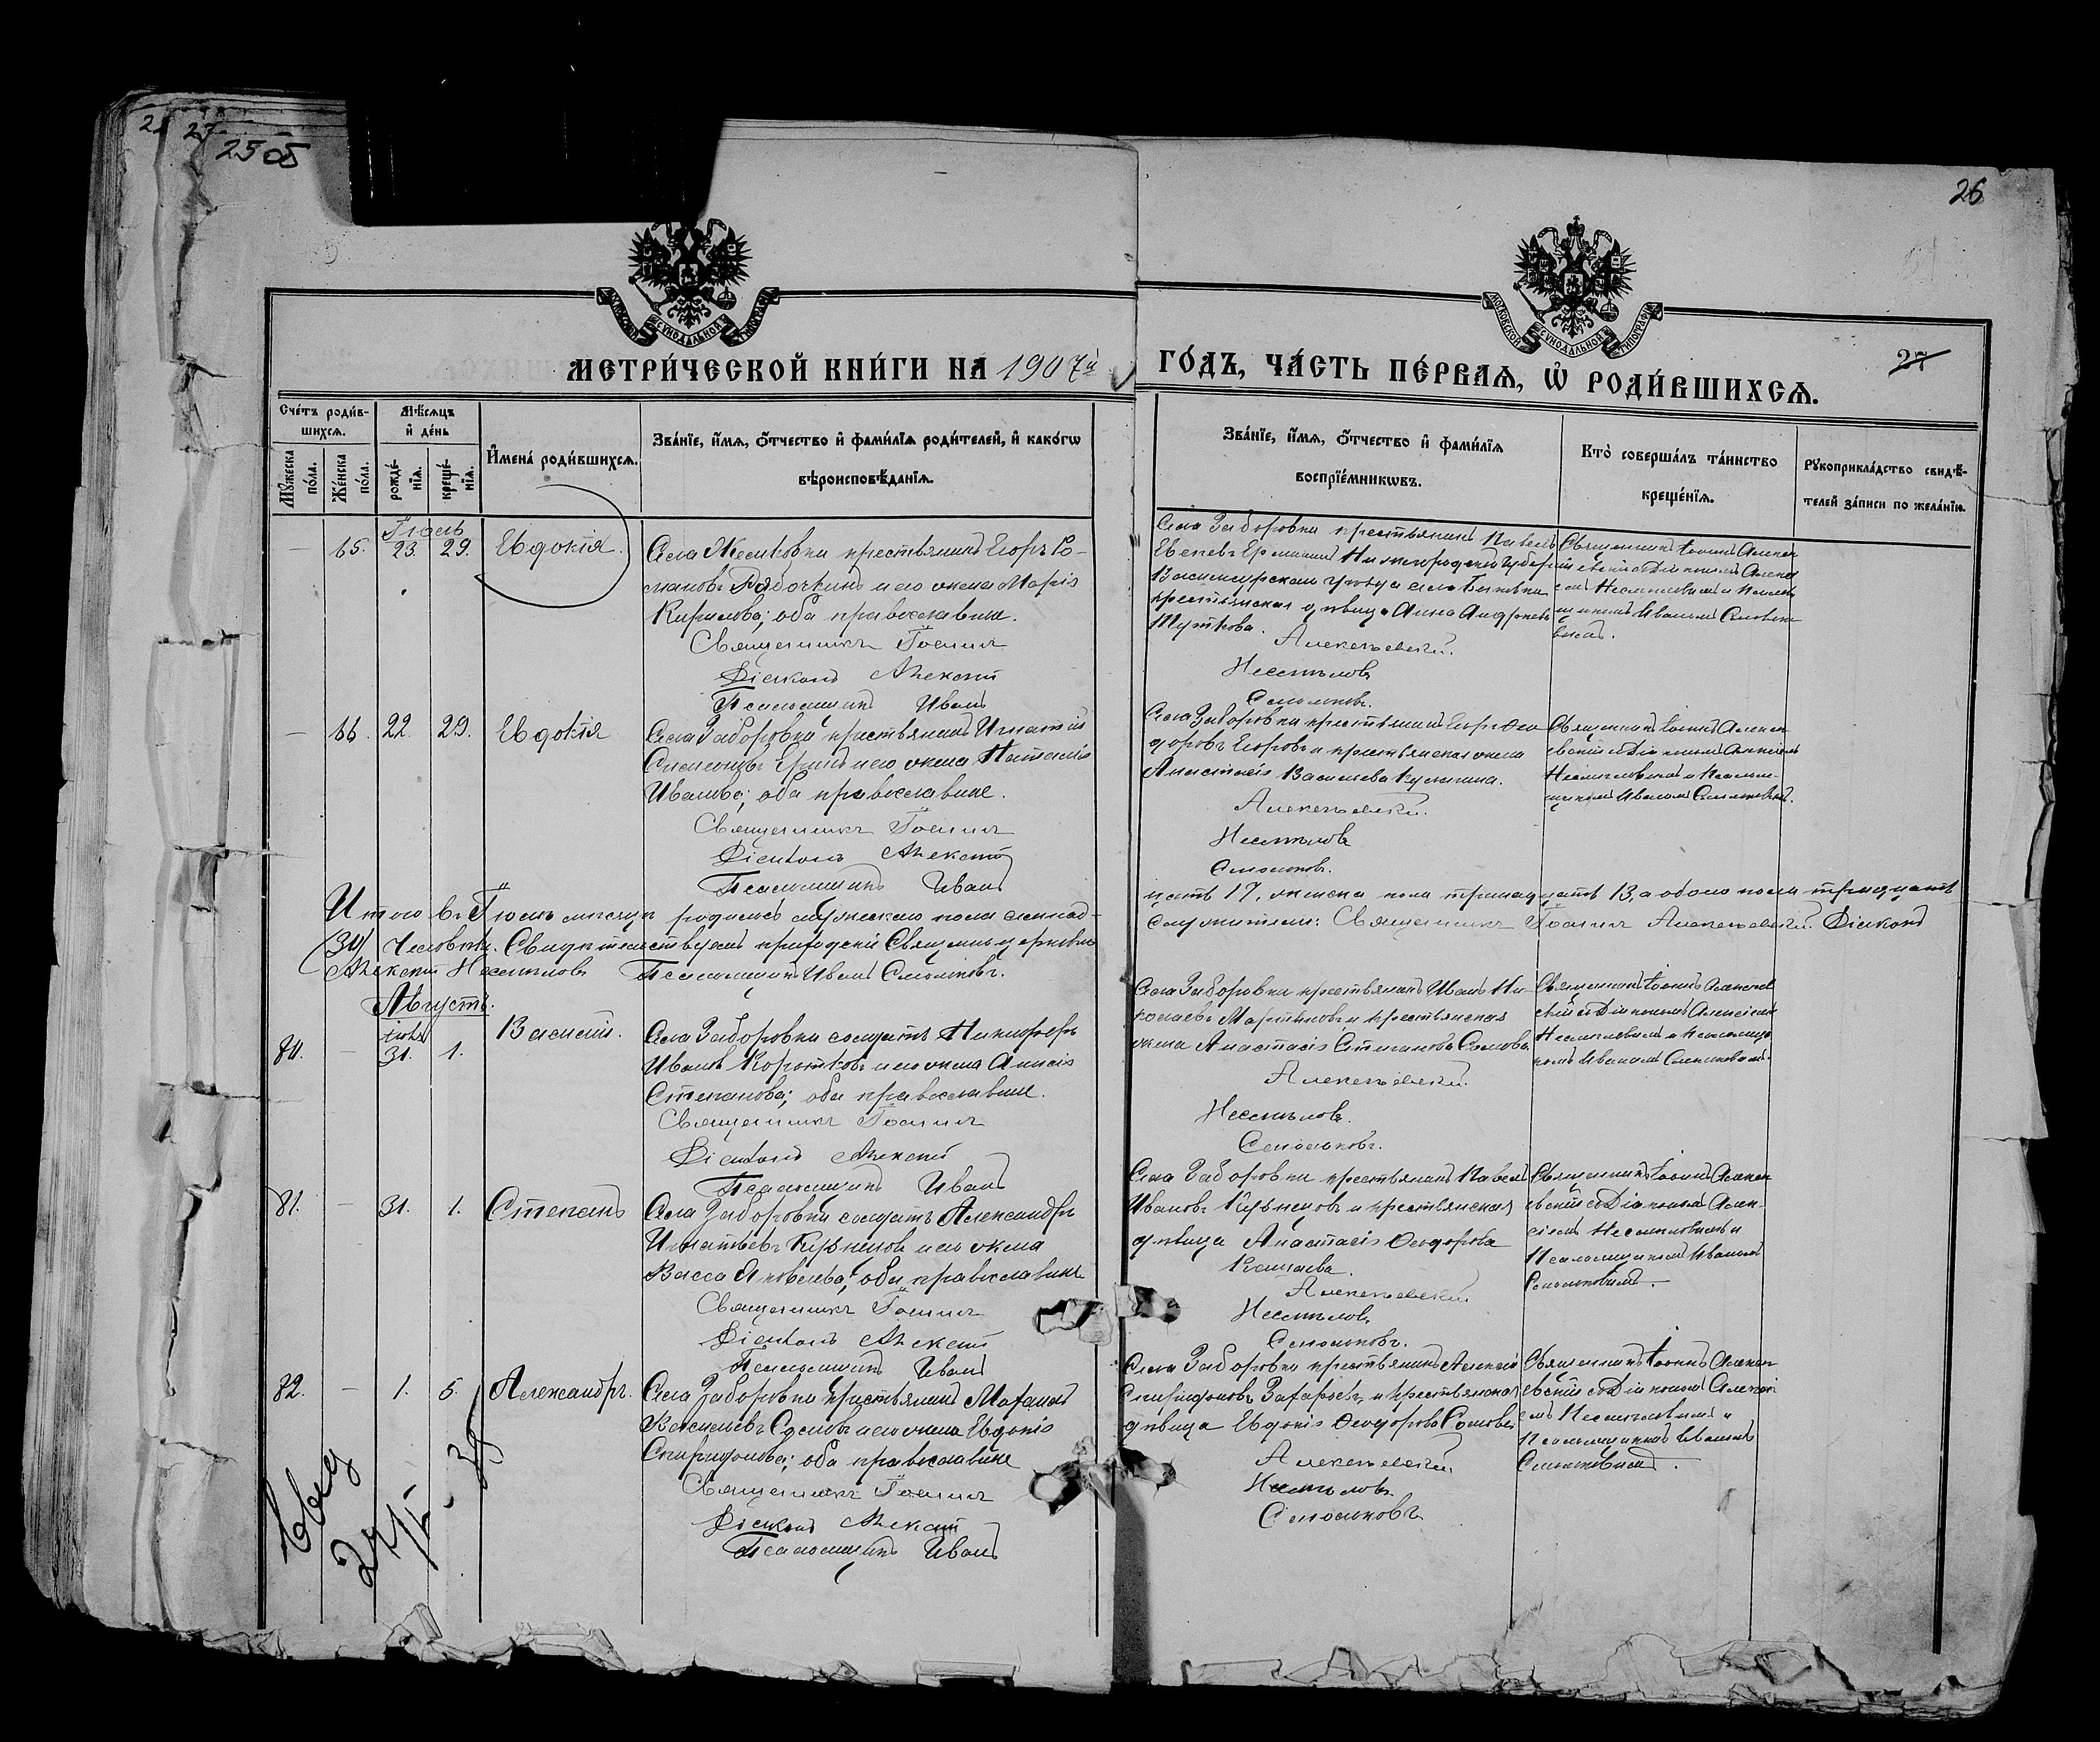 2505
26
МОСКОВСКОЙ СѴНОДАЛЬНОЙ ТИПОГРАФІИ
МОСКОВСКОЙ СѴНОДАЛЬНОЙ ТИПОГРАФІИ
МЕТРИ́ЧЕСКОЙ КНИ́ГИ НА 1907й ГО́ДЪ, ЧА́СТЬ ПЕ́РВАѦ, Ѡ҆ РОДИ́ВШИХСѦ.
27
Сче́тъ роди́в-
шихсѧ.
Мѣ́сѧцъ
и҆ де́нь
Мꙋ́жеска по́ла.
Же́нска по́ла.
рожде́-нїѧ.
креще́-нїѧ.
И҆мена̀ роди́вшихсѧ.
Зва́нїе, и҆́мѧ, ѻ҆́тчество и҆ фами́лїѧ роди́телей, и҆ какогѡ
вѣроисповѣ́данїѧ.
Зва́нїе, и҆́мѧ, ѻ҆́тчество и҆ фами́лїѧ
воспрїе́мникѡвъ.
Кто̀ соверша́лъ та́инство
креще́нїѧ.
Рꙋкоприкла́дство свидѣ́-
телей за́писи по жела́нїю.
Іюль
65. 23. 29. Евдокія.
Села крестьянинъ Егоръ Ро-
мановъ Рябочкинъ и его жена Марія
Кирилова; оба православные.
Священникъ Іоаннъ
Діаконъ Алексѣй
Псаломщикъ Иванъ
Села Заборовки крестьянинъ Павелъ
Нижегородской губерніи
Васильсурскаго уѣзда села
крестьянская дѣвица Анна Андреева
Алексѣевскій.
Несмѣловъ
Смольковъ.
Священникъ Іоаннъ Алексѣ-
евскій съ Діакономъ Алексѣ-
емъ Несмѣловымъ и Псалом-
щикомъ Иваномъ Смолько-
вымъ.
66. 22. 29. Евдокія
Села Заборовки крестьянинъ Игнатій
и его жена Наталія
Иванова; оба православные.
Священникъ Іоаннъ
Діаконъ Алексѣй
Псаломщикъ Иванъ
Села Заборовки крестьянинъ Егоръ Ѳео-
доровъ Егоровъ и крестьянская жена
Анастасія Васильева
Алексѣевскій.
Несмѣловъ
Смольковъ.
Священникъ Іоаннъ Алексѣ-
евскій съ Діакономъ Алексѣемъ
Несмѣловымъ и Псалом-
щикомъ Иваномъ Смольковымъ.
Итого въ Іюлѣ мѣсяцѣ родилось мужескаго пола семнад-
цать 17, женска пола тринадцать 13, а обоего пола тридцать
(30) человѣкъ. Свидѣтельствуемъ приходскіе Священно церковно
служители: Священникъ Іоаннъ Алексѣевскій. Діаконъ
Алексѣй Несмѣловъ Псаломщикъ Иванъ Смольковъ.
Августъ.
іюля
80. — 31. 1. Василій.
Села Заборовки солдатъ Никифоръ
Ивановъ Коротковъ и его жена Анисія
Степанова; оба православные.
Священникъ Іоаннъ
Діаконъ Алексѣй
Псаломщикъ Иванъ
Села Заборовки крестьянинъ Иванъ Ни-
колаевъ Мартыновъ и крестьянская
жена Анастасія Степанова Сомова.
Алексѣевскій.
Несмѣловъ.
Смольковъ.
Священникъ Іоаннъ Алексѣев-
скій съ Діакономъ Алексѣемъ
Несмѣловымъ и Псаломщи-
комъ Иваномъ Смольковымъ.
81. — 31. 1. Степанъ
Села Заборовки солдатъ Александръ
Игнатьевъ Кузнецовъ и его жена
Васса Яковлева; оба православные.
Священникъ Іоаннъ
Діаконъ Алексѣй
Псаломщикъ Иванъ
Села Заборовки крестьянинъ Павелъ
Ивановъ Кузнецовъ и крестьянская
дѣвица Анастасія Ѳеодорова
Алексѣевскій
Несмѣловъ
Смольковъ.
Священникъ Іоаннъ Алексѣ-
евскій съ Діакономъ Алек-
сѣемъ Несмѣловымъ и
Псаломщикомъ Иваномъ
Смольковымъ.
82. — 1. 5. Александръ.
Села Заборовки крестьянинъ
Васильевъ и его жена Евдокія
Спиридонова; оба православные
Священникъ Іоаннъ
Діаконъ Алексѣй
Псаломщикъ Иванъ
Села Заборовки крестьянинъ Алексѣй
Спиридоновъ Захаровъ, и крестьянская
дѣвица Евдокія Ѳеодорова Сомова.
Алексѣевскій
Несмѣловъ.
Смольковъ
Священникъ Іоаннъ Алексѣ-
евскій съ Діакономъ Алексѣ-
емъ Несмѣловымъ и
Псаломщикомъ Иваномъ
Смольковымъ.